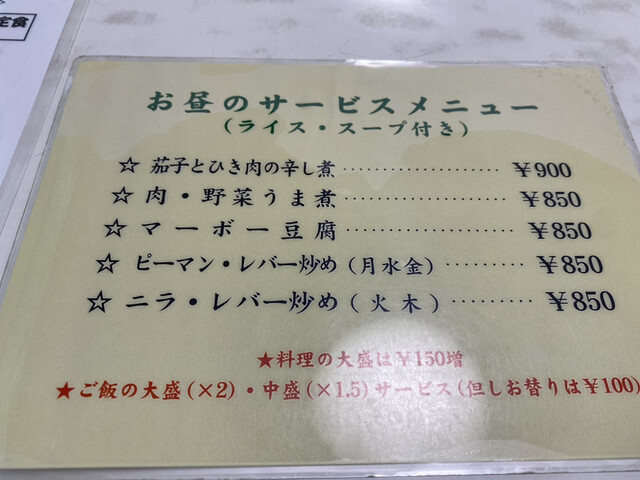 定食
お昼のサービスメニュー
(ライス・スープ付き)
☆ 茄子とひき肉の辛し煮 ・・・・・・・・・・・・・・・・・・・・ ¥900
☆ 肉・野菜うま煮 ・・・・・・・・・・・・・・・・・・・・・ ¥850
☆ マーボー豆腐 ・・・・・・・・・・・・・・・・・・・・・ ¥850
☆ ピーマン・レバー炒め (月水金) ・・・・・・・・・ ¥850
☆ ニラ・レバー炒め (火木) ・・・・・・・・・ ¥850
★料理の大盛は¥150増
★ご飯の大盛(×2)・中盛(×1.5)サービス(但しお替りは¥100)